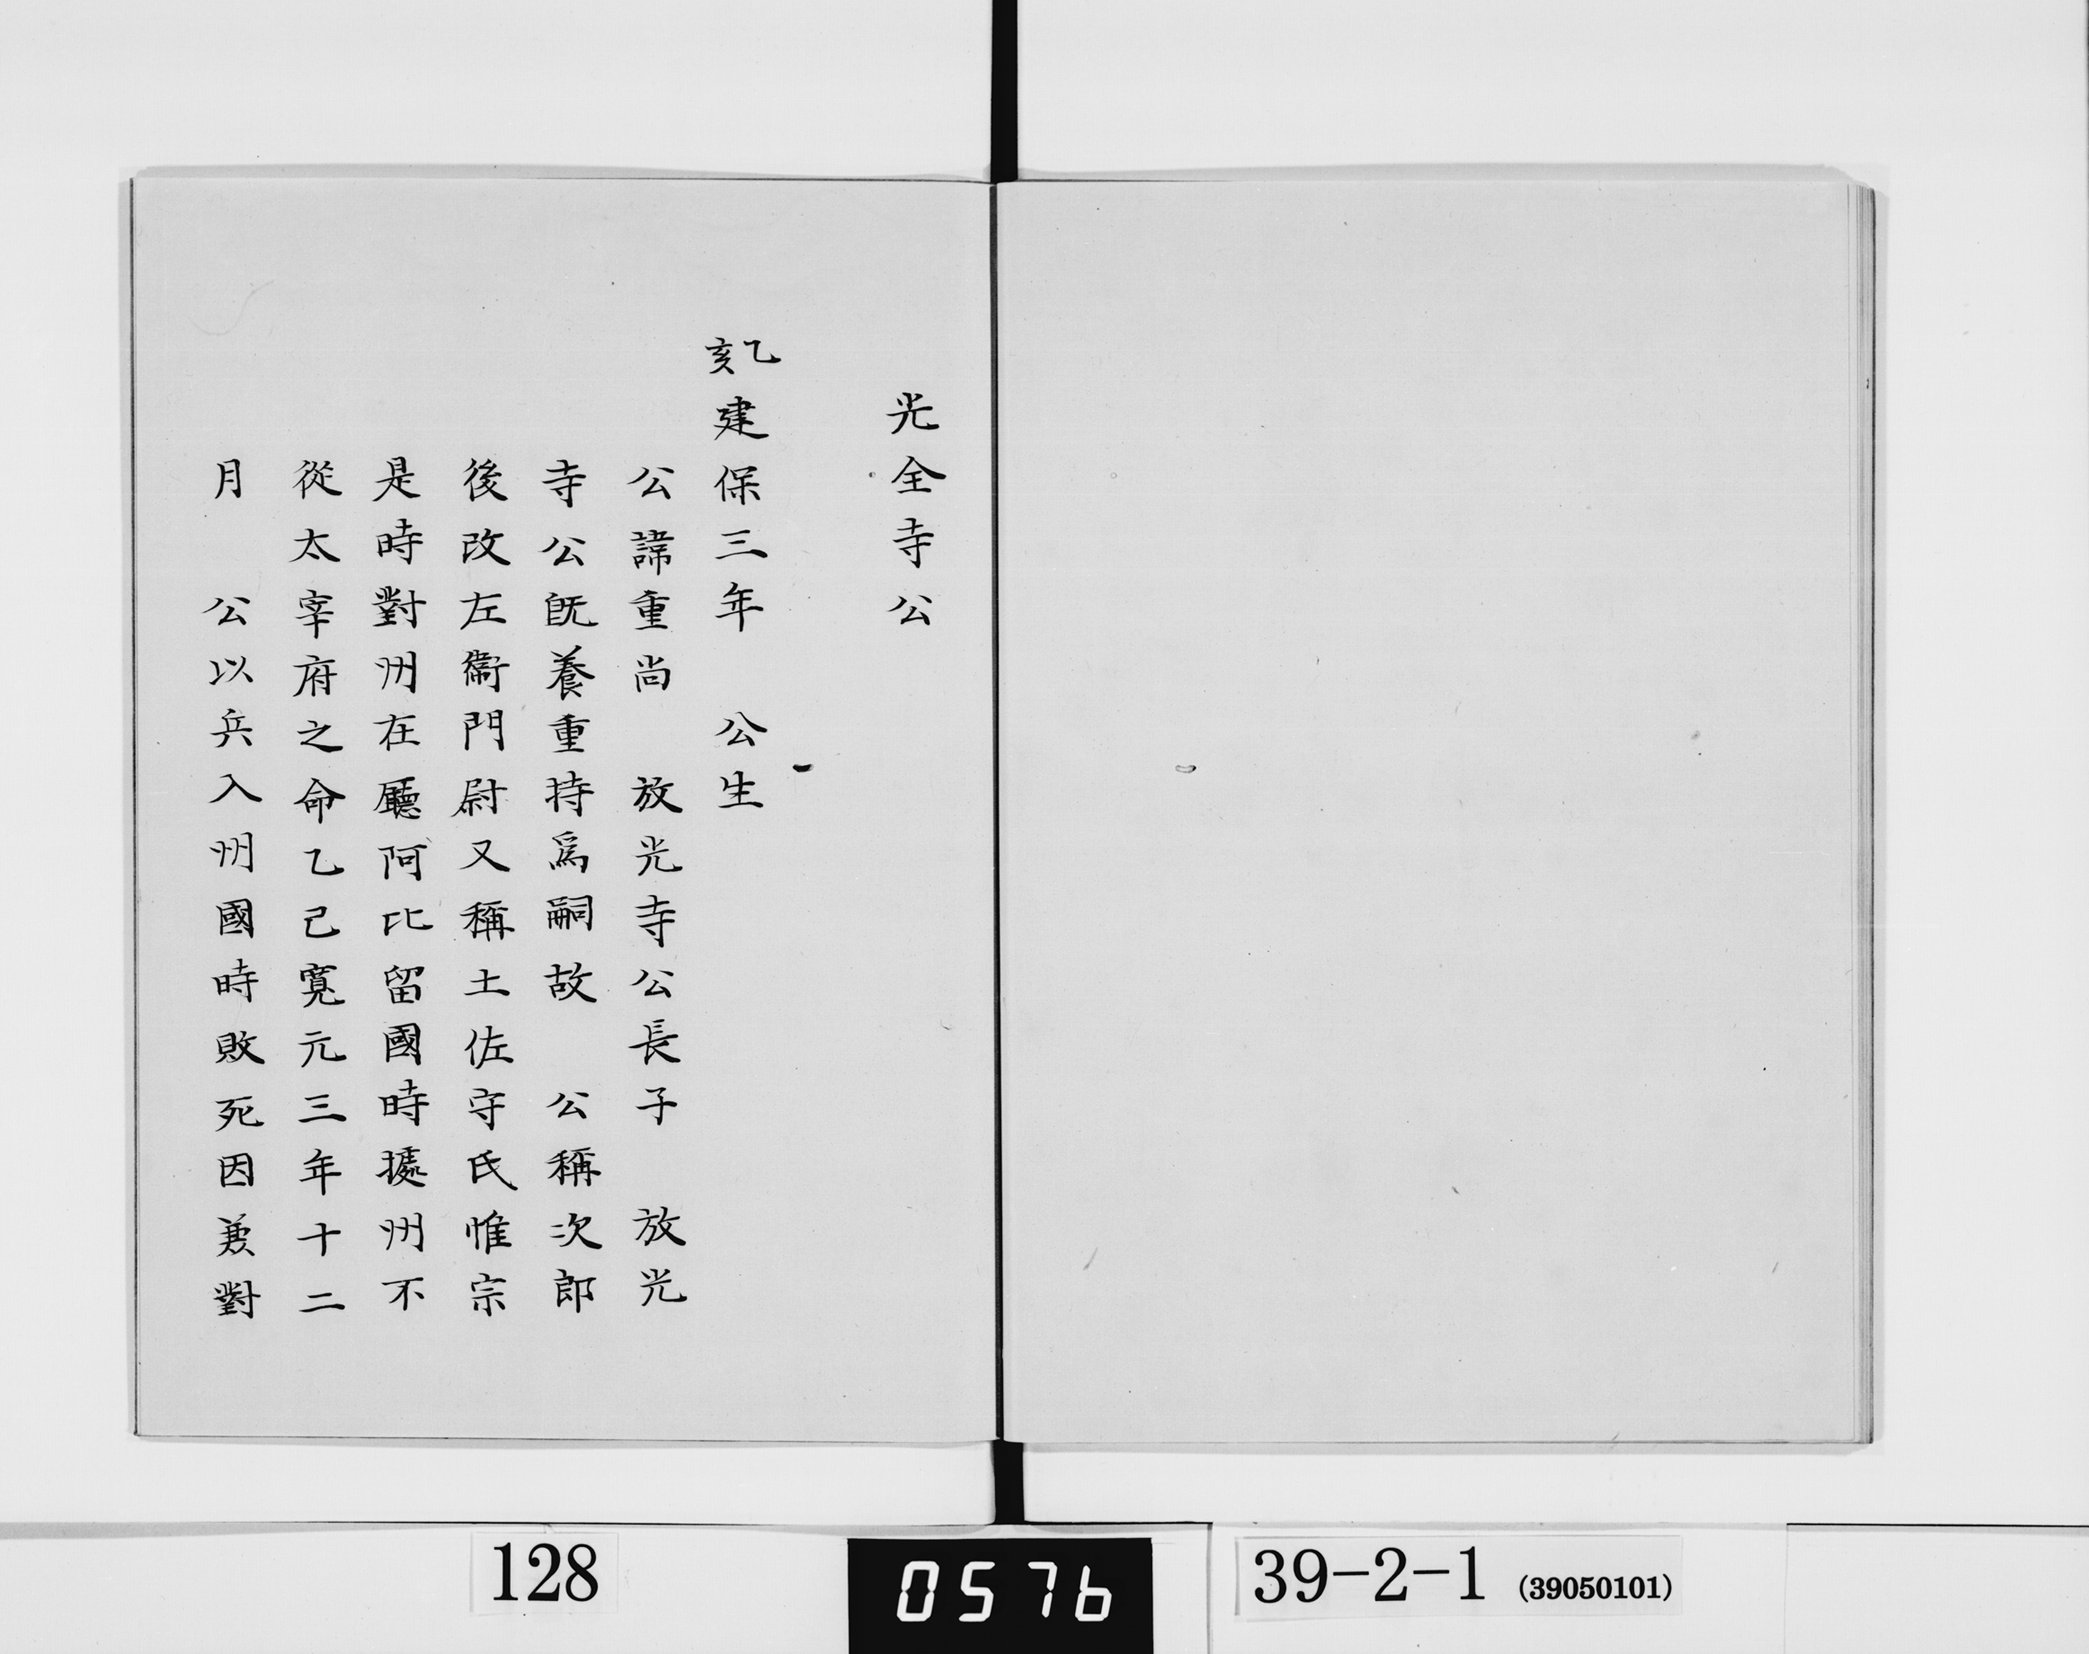 光全寺公
乙亥建保三年　公生
公諱重尚　放光寺公長子　放光
寺公既養重持爲嗣故　公稱次郎
後改左衞門尉又稱土佐守氏惟宗
是時對州在廳阿比留國時據州不
從太宰府之命乙己寬元三年十二
月　公以兵入州國時敗死因兼對
128
0576
39-2-1 (39050101)